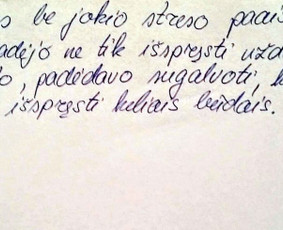 s be jokio streso paais
adėjo ne tik išspręsti užda
o, padėdavo sugalvoti, k
išspręsti keliais būdais.